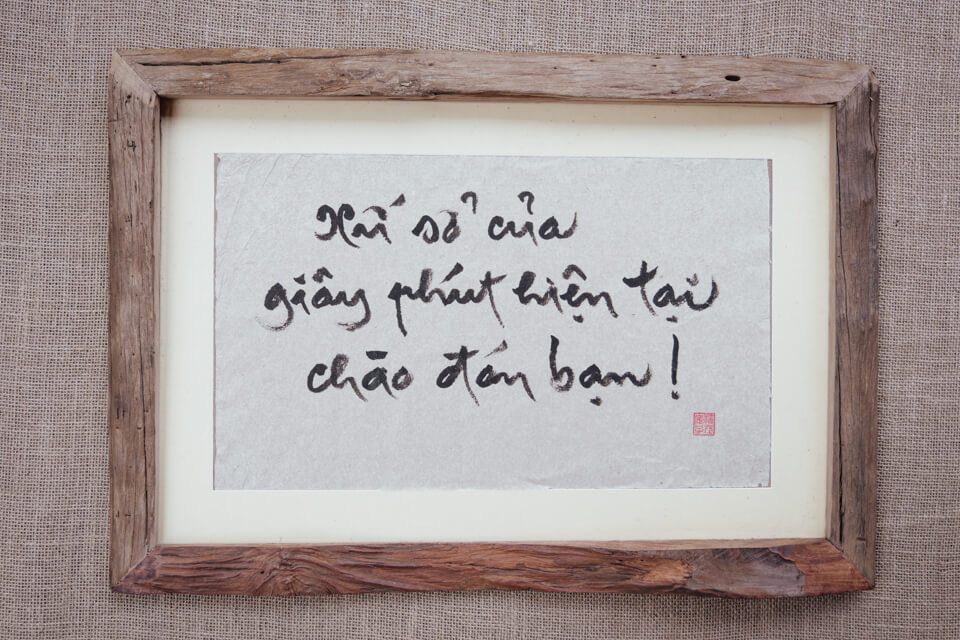 Xứ sở của
giây phút hiện tại
chào đón bạn !